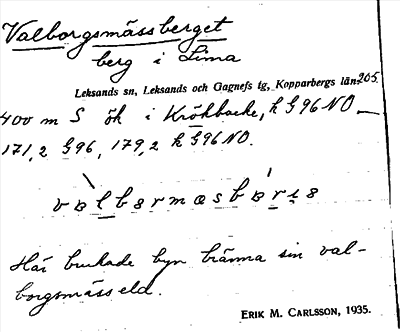 Valborgsmässberget
berg i Lima
Leksands sn, Leksands och Gagnefs tg, Kopparbergs län 265
400 m S ök i Krökbacke, k G96 NO
171,2 G96, 179,2 k G96 NO.
Här brukade byn bränna sin val-
borgsmässeld.
ERIK M. CARLSSON, 1935.